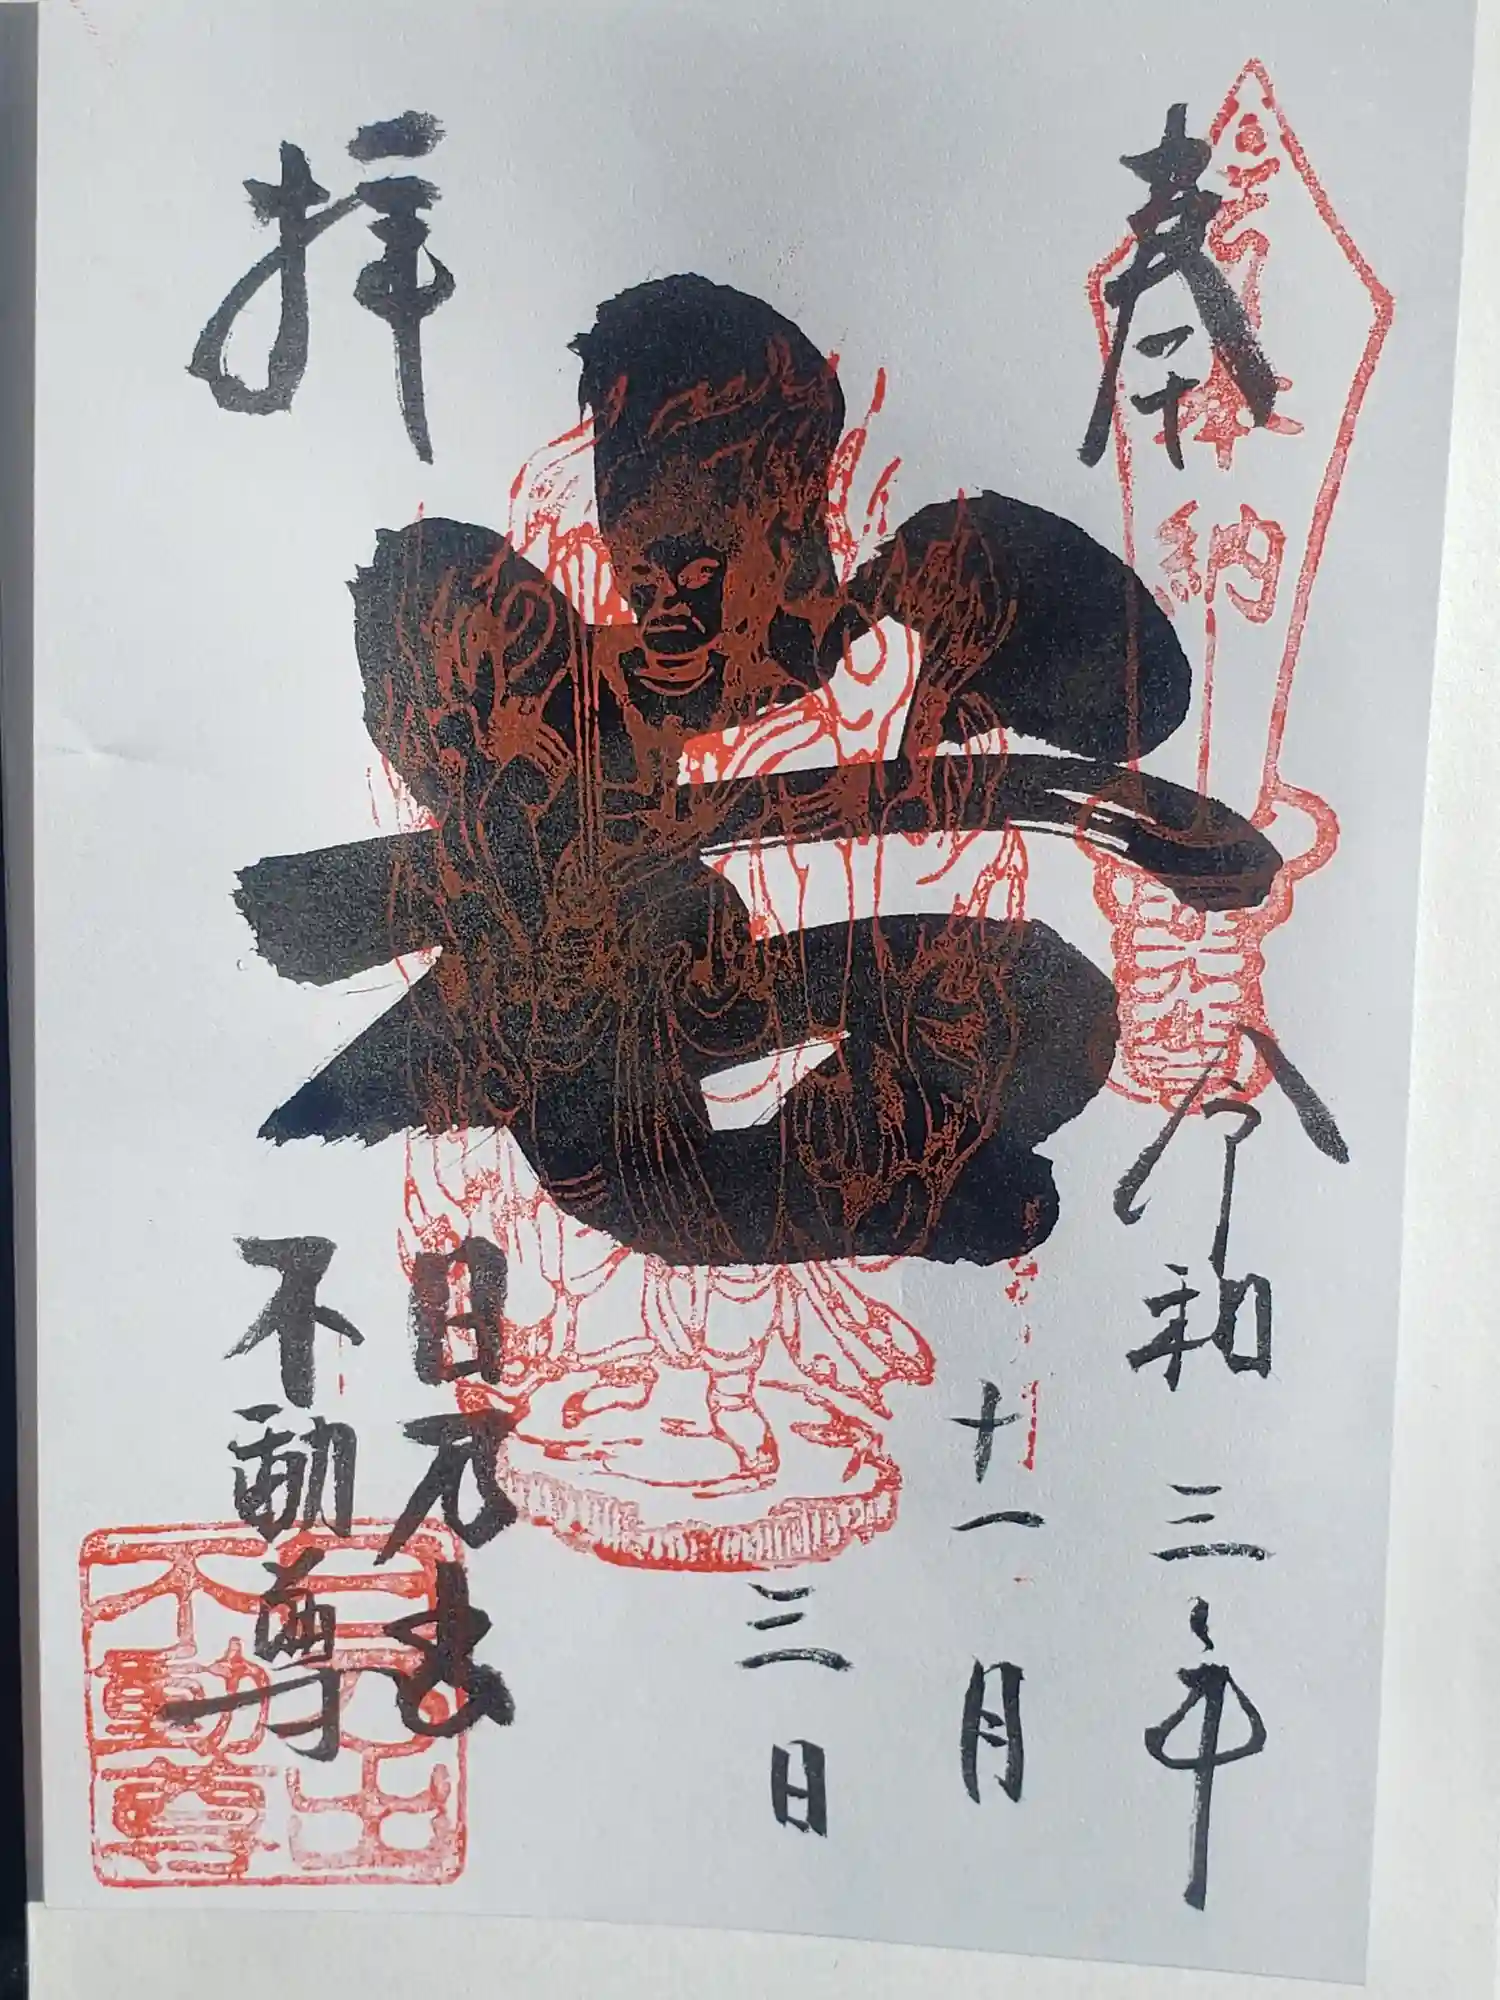 奉
納
令和三年
十一月
三日
拝
日乃出
不動尊
不動尊